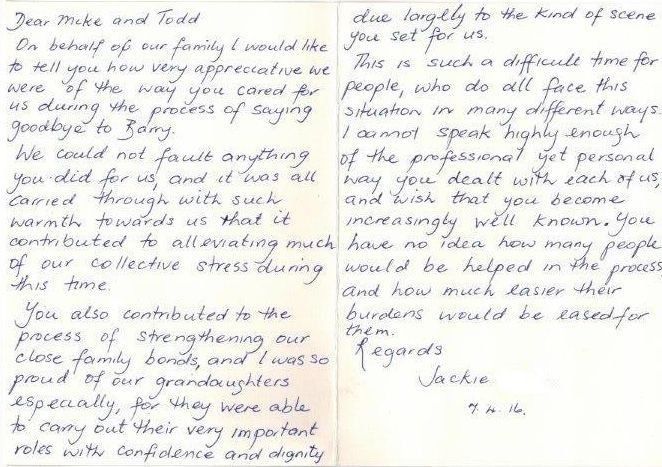 Dear Mike and Todd
On behalf of our family I would like
to tell you how very appreciative we
were of the way you cared for
us during the process of saying
goodbye to Barry.
We could not fault anything
you did for us, and it was all
carried through with such
warmth towards us that it
contributed to alleviating much
of our collective stress during
this time.
You also contributed to the
process of strengthening our
close family bonds, and I was so
proud of our grandaughters
especially, for they were able
to carry out their very important
roles with confidence and dignity
due largely to the kind of scene
you set for us.
This is such a difficult time for
people, who do all face this
situation in many different ways.
I cannot speak highly enough
of the professional yet personal
way you dealt with each of us,
and wish that you become
increasingly well known. You
have no idea how many people
would be helped in the process
and how much easier their
burdens would be eased for
them.
Regards
Jackie
7.4.16.